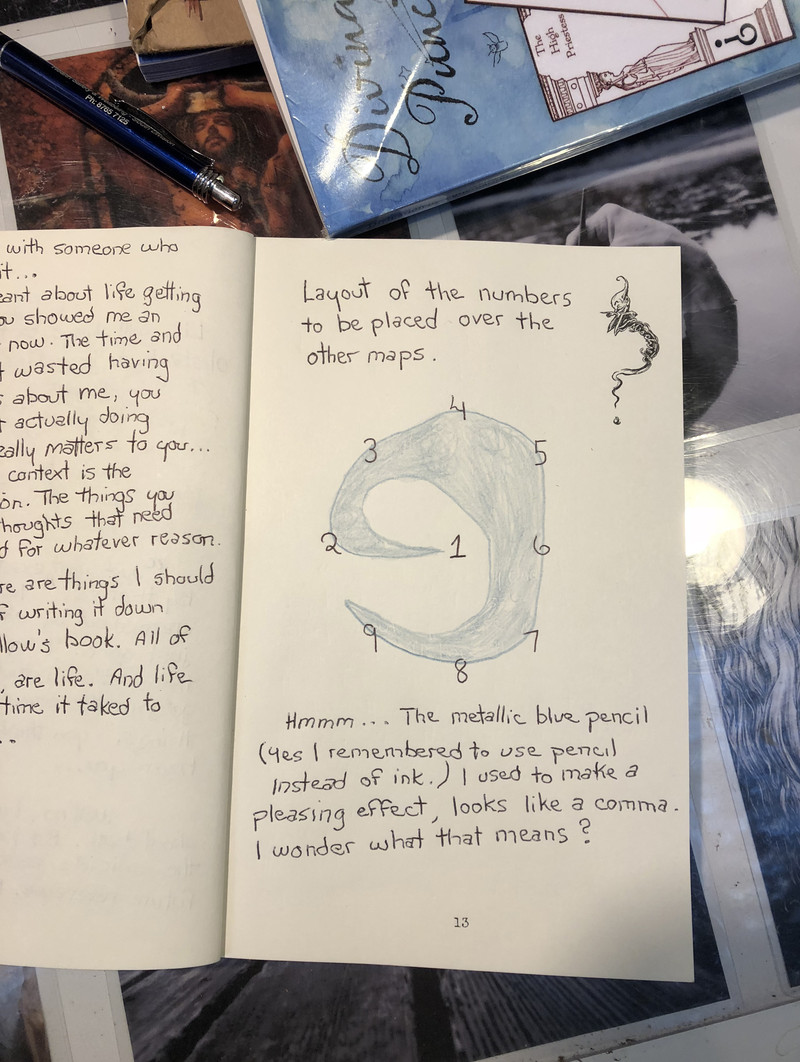 PH: 8765 7125
Divina
Punc
The
High
Priestess
?
with someone who
it...
eant about life getting
ou showed me an
now. The time and
t wasted having
s about me, you
t actually doing
eally matters to you...
context is the
on. The things you
thoughts that need
d for whatever reason.
re are things I should
f writing it down
llow's book. All of
, are life. And life
time it taked to
..
Layout of the numbers
to be placed over the
other maps.
4
3
5
2
1
6
9
7
8
Hmmm... The metallic blue pencil
(yes I remembered to use pencil
instead of ink.) I used to make a
pleasing effect, looks like a comma.
I wonder what that means?
13